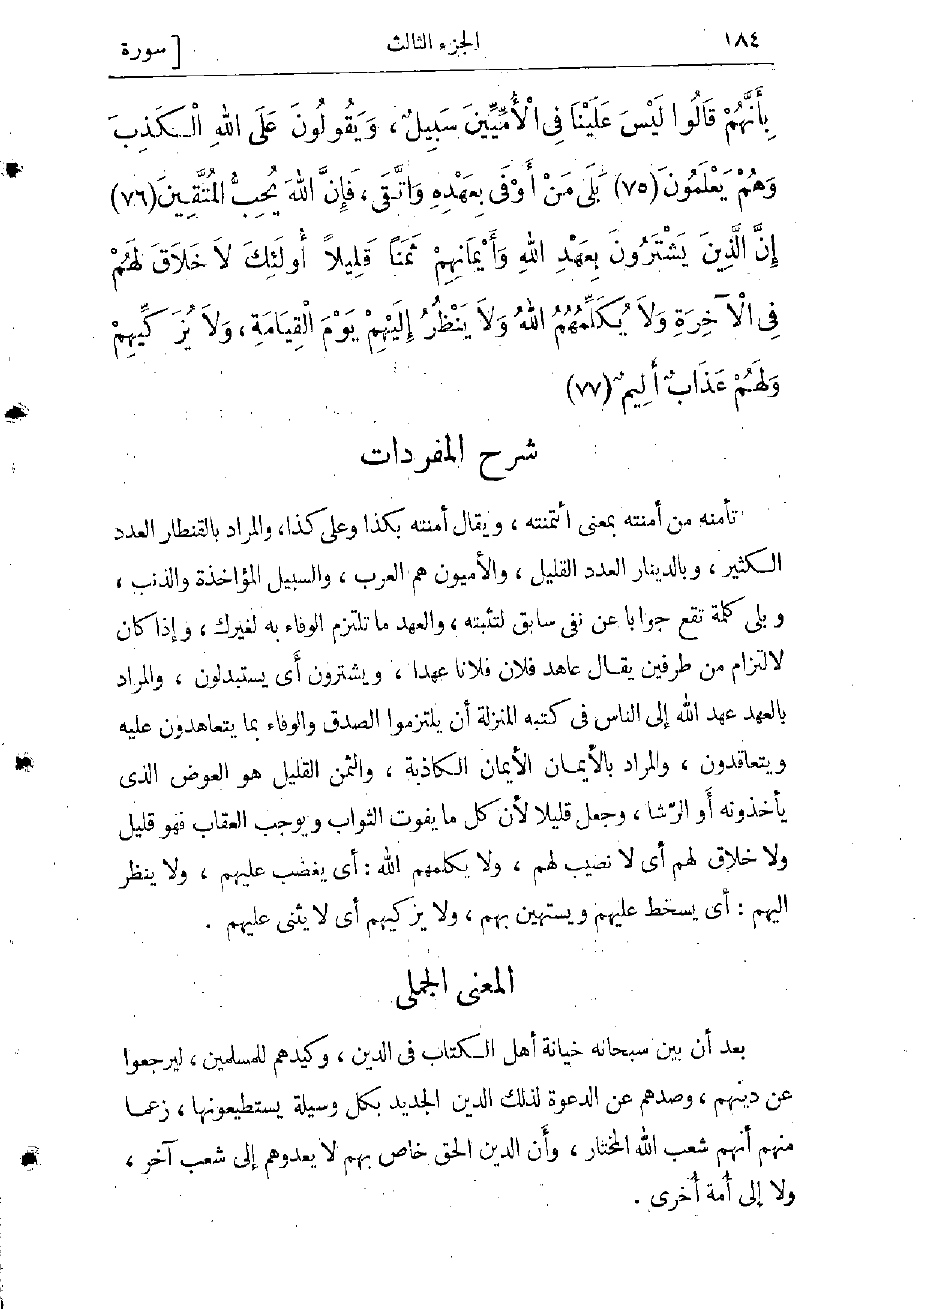 ١٨٤ الجزء الثالث [ سورة
بِأَنَّهُمْ قَالُوا لَيْسَ عَلَيْنَا فِى الْأُمِّيِّينَ سَبِيلٌ، وَيَقُولُونَ عَلَى اللهِ الْكَذِبَ
وَهُمْ يَعْلَمُونَ (٧٥) بَلَى مَنْ أَوْفَى بِعَهْدِهِ وَاتَّقَى، فَإِنَّ اللهَ يُحِبُّ الْمُتَّقِينَ (٧٦)
إِنَّ الَّذِينَ يَشْتَرُونَ بِعَهْدِ اللهِ وَأَيْمَانِهِمْ ثَمَنًا قَلِيلاً أُولَئِكَ لاَ خَلاَقَ لَهُمْ
فِى الْآخِرَةِ وَلاَ يُكَلِّمُهُمُ اللهُ وَلاَ يَنْظُرُ إِلَيْهِمْ يَوْمَ الْقِيَامَةِ، وَلاَ يُزَكِّيهِمْ
وَلَهُمْ عَذَابٌ أَلِيمٌ (٧٧)
شرح المفردات
تأمنه من أمنته بمعنى ائتمنته ، ويقال أمنته بكذا وعلى كذا، والمراد بالقنطار العدد
الكثير ، وبالدينار العدد القليل ، والأميون هم العرب ، والسبيل المؤاخذة والذنب ،
وبلى كلمة تقع جوابا عن نفى سابق لتثبته ، والعهد ما تلتزم الوفاء به لغيرك ، وإذا كان
لالتزام من طرفين يقال عاهد فلان فلانا عهدا ، ويشترون أى يستبدلون ، والمراد
بالعهد عهد الله إلى الناس فى كتبه المنزلة أن يلتزموا الصدق والوفاء بما يتعاهدون عليه
ويتعاقدون ، والمراد بالأيمان الأيمان الكاذبة ، والثمن القليل هو العوض الذى
يأخذونه أو الرّشا ، وجعل قليلا لأن كل ما يفوت الثواب ويوجب العقاب فهو قليل
ولا خلاق لهم أى لا نصيب لهم ، ولا يكلمهم الله : أى يغضب عليهم ، ولا ينظر
اليهم : أى يسخط عليهم ويستهين بهم ، ولا يزكيهم أى لا يثنى عليهم .
المعنى الجملى
بعد أن بين سبحانه خيانة أهل الكتاب فى الدين ، وكيدهم للمسلمين ، ليرجعوا
عن دينهم ، وصدهم عن الدعوة لذلك الدين الجديد بكل وسيلة يستطيعونها ، زعما
منهم أنهم شعب الله المختار ، وأن الدين الحق خاص بهم لا يعدوهم إلى شعب آخر ،
ولا إلى أمة أخرى .